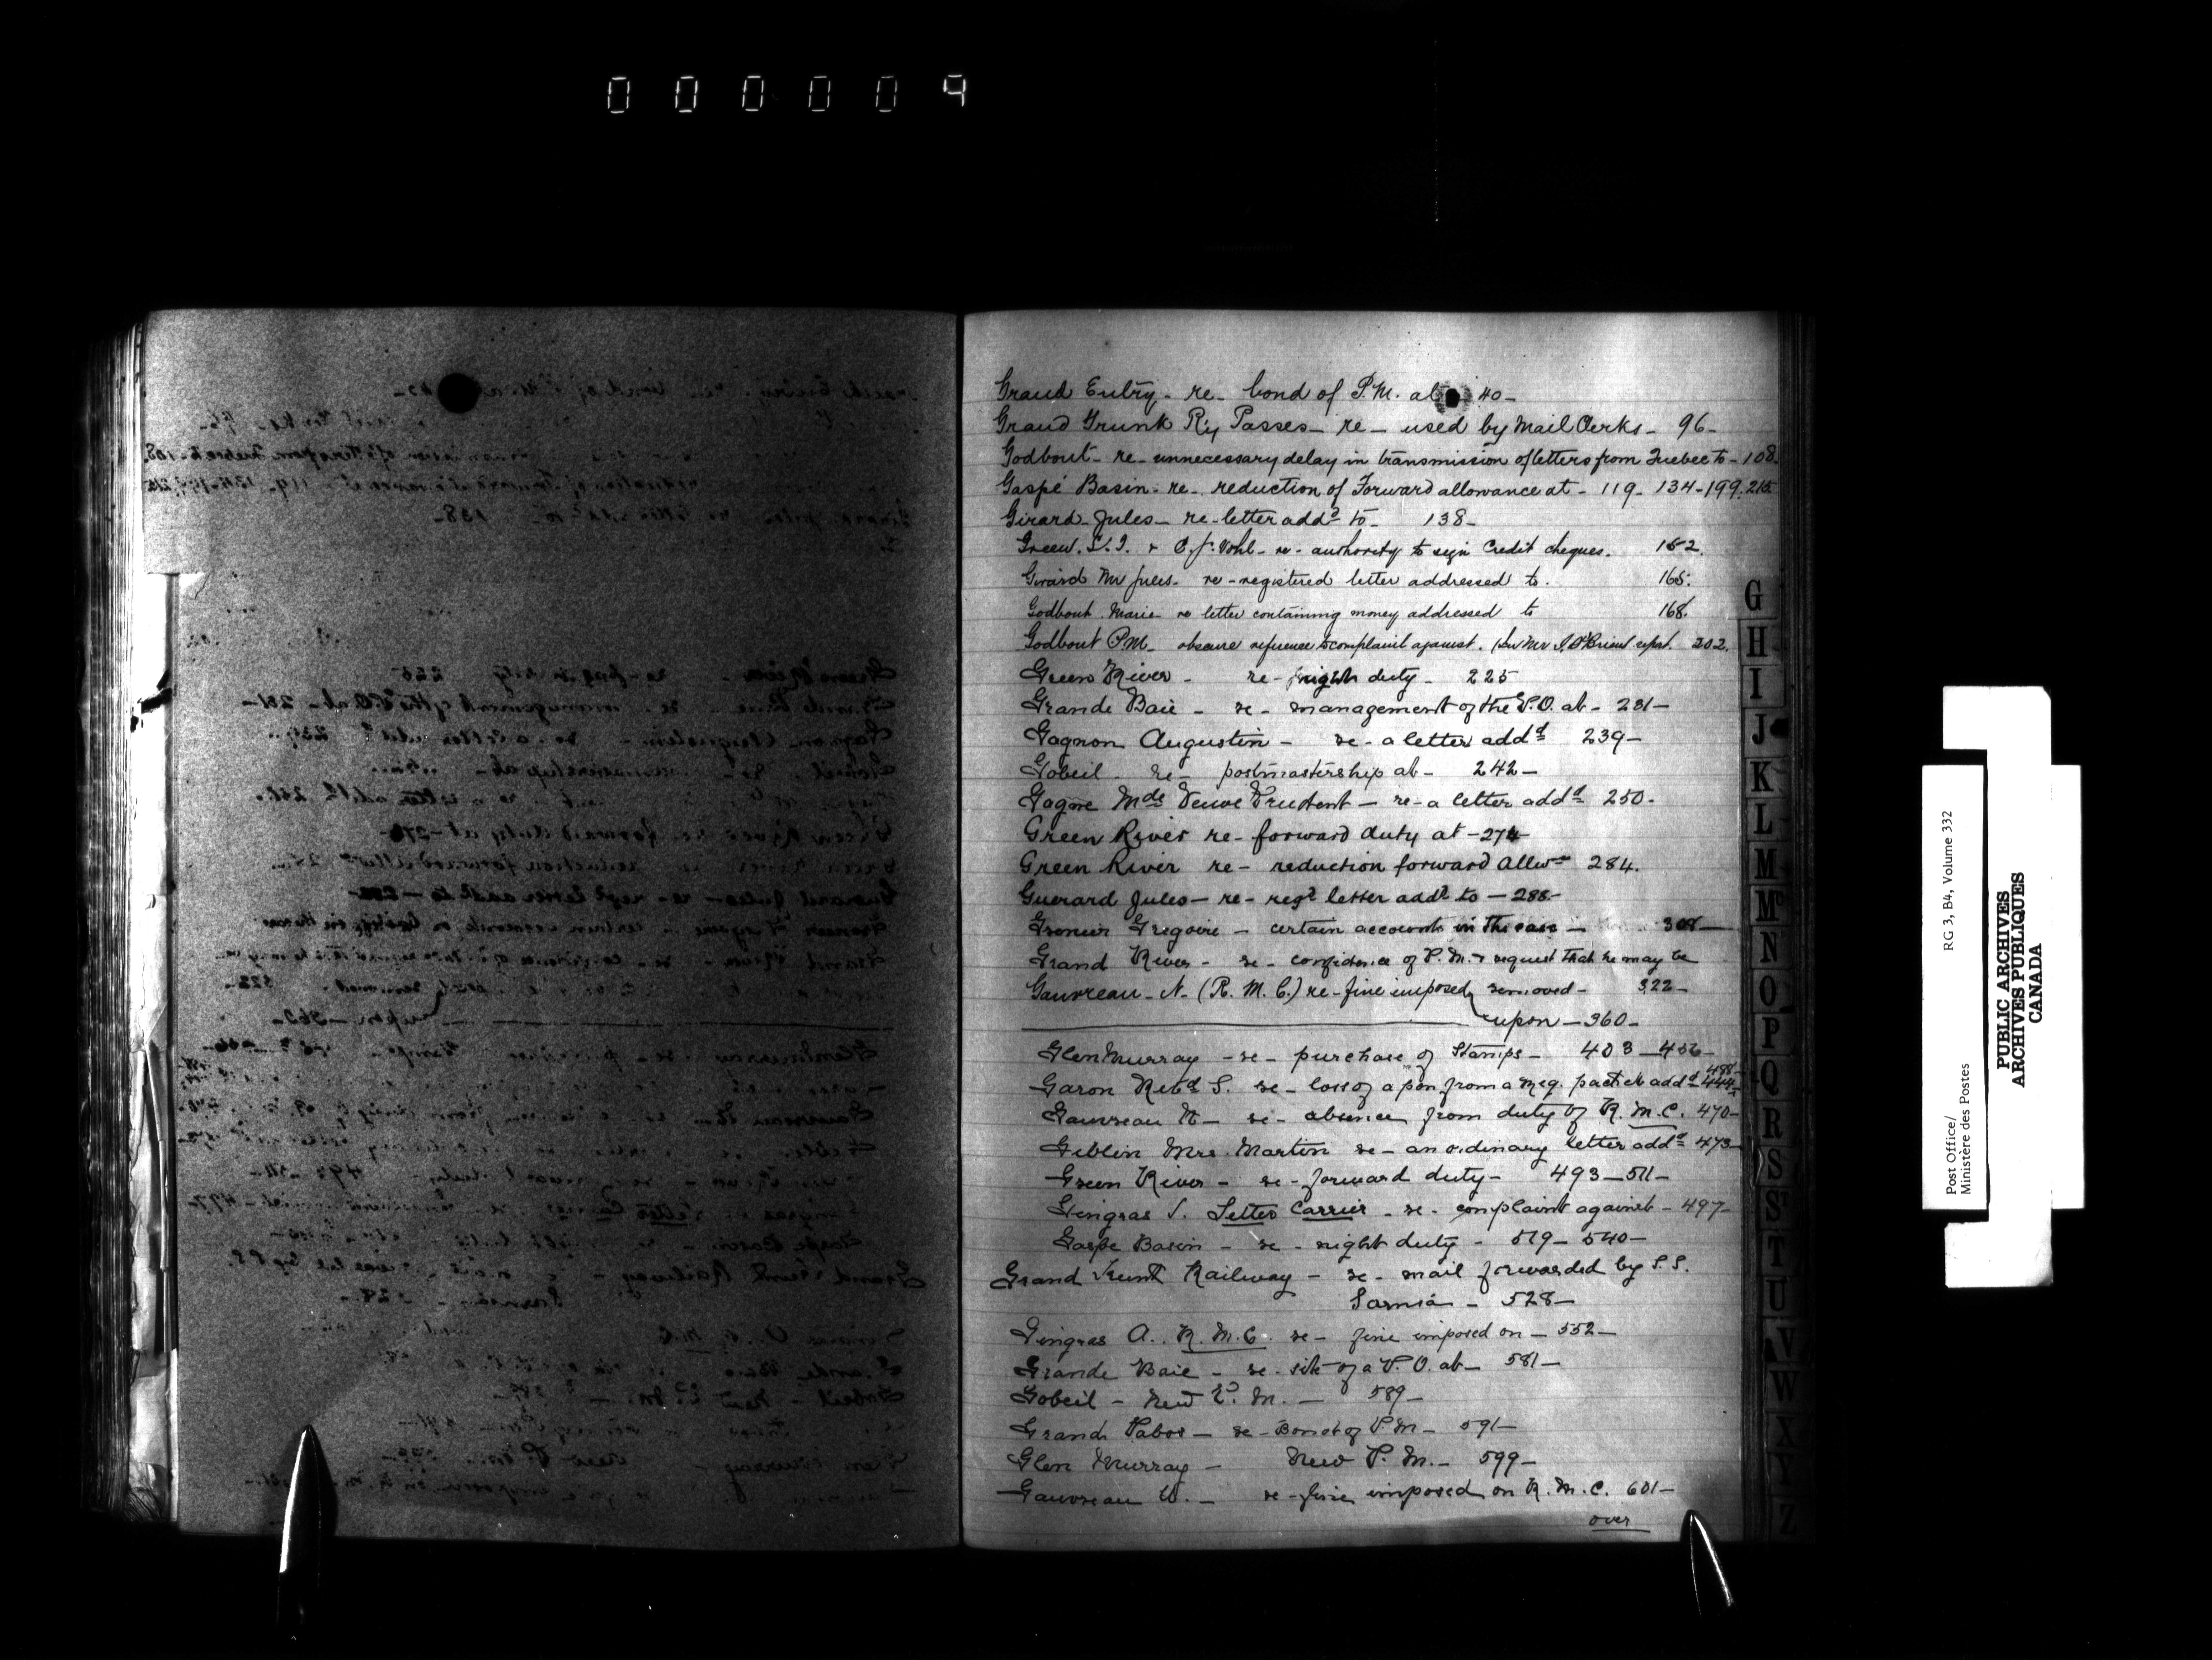 000009
Grand Entry - re - bond of P.M. at - 40 -
Grand Trunk Ry Passes - re - used by Mail Clerks - 96 -
Godbout - re - unnecessary delay in transmission of letters from Quebec to - 108 -
Gaspé Basin - re - reduction of Forward allowance at - 119 - 134 - 199. 215
Girard Jules - re - letter addd to - 138 -
Green. & C. J. Vohl - re - authority to sign Credit cheques. 152.
Girard Mr Jules - re - registered letter addressed to. 165.
Godbout Marie re letter containing money addressed to 168.
Godbout P.M. obscure reference to complaint against. 202.
Green River - re - night duty - 225
Grande Baie - re - management of the P.O. at - 231 -
Gagnon Augustin - re - a letter addd 239 -
Gobeil - re - postmastership at - 242 -
Gagne Mde Veuve Prudent - re - a letter addd 250 -
Green River re - forward duty at - 274 -
Green River re - reduction forward Allwce 284.
Guerard Jules - re - regd letter addd to - 288 -
Gregoire - certain accounts in the case - 308 -
Grand River - re - confidence of P.M. & request that he may be
Gauvreau - N - (R. M. C.) re - fine imposed removed - 322 -
upon - 360 -
Glen Murray - re - purchase of Stamps - 403 - 456 -
488 -
Garon Revd S. re - loss of a pon from a reg. packet addd 444 -
Gauvreau N - re - absence from duty of R. M. C. 470 -
Geblin Mrs. Martin re - an ordinary letter addd 473 -
Green River - re - forward duty - 493 - 511 -
Gingras J. Letter Carrier - re - complaint against - 497 -
Gaspe Basin - re - night duty - 519 - 540 -
Grand Trunk Railway - re - mail forwarded by S.S.
Sarnia - 528 -
Gingras A. R. M. C. re - fine imposed on - 552 -
Grande Baie - re - site of a P.O. at - 581 -
Gobeil - New P. M. - 589 -
Grand Pabos - re - Bond of P.M - 591 -
Glen Murray - New P. M. - 599 -
Gauvreau N. - re - fine imposed on R. M. C. 601 -
over
G
H
I
J
K
L
M
Mc
N
O
P
Q
R
S
St
T
U
V
W
X
Y
Z
Post Office/
Ministère des Postes
RG 3, B4, Volume 332
PUBLIC ARCHIVES
ARCHIVES PUBLIQUES
CANADA